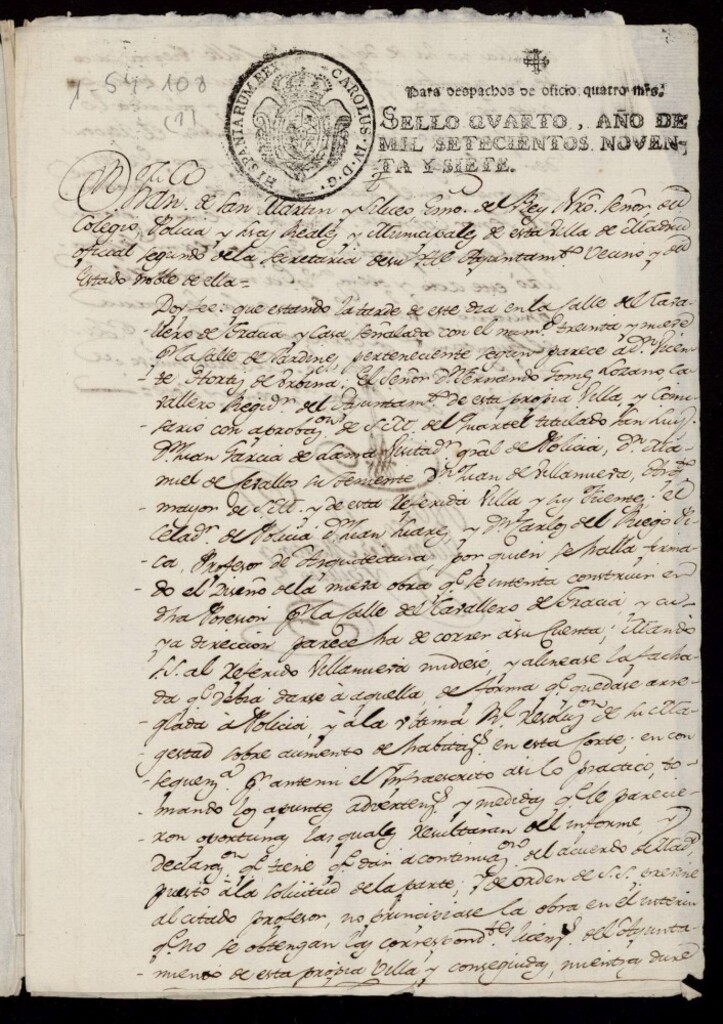 1-54-108
(1)
HISPANIARUM REX CAROLUS IV D.G.
Para despachos de oficio quatro mrs.
SELLO QVARTO, AÑO DE
MIL SETECIENTOS NOVEN-
TA Y SIETE.
de San Martin y Esno. del Rey Nro. Señor del
Colegio, Policia, y Reales y Municipales de esta Villa de Madrid
oficial segundo de la Secretaria de su Ayuntamto. Vecino y del
Estado noble de ella=
Doy fee: que estando la tarde de este dia en la Calle del Cava-
llero de Gracia y Casa señalada con el numo. treinta y nueve
pr. la Calle de Jardines, perteneciente segun parece a Dn. Vicen-
te Hortiz de : El Señor Dn. Fernando Gomez Lozano Ca-
vallero Regidr. del Ayuntamto. de esta propia Villa, y Comi-
sario con aprobazon. de S.M. del Quartel titulado San Luis,
Dn. Juan Garcia de Visitadr. gral de Policia, Dn. Ma-
nuel de Zevallos su Teniente Dn. Juan de Villanueva, Arqto.
mayor de S.M. y de esta referida Villa y sus Fuentes: el
Celadr. de Policia Dn. Juan Suarez y Dn. Carlos del Riego Pi-
ca, Profesor de Arquitectura, por quien se halla firma-
do el Diseño de la nueva obra qe. se intenta construir en
dha Posesion pr. la Calle del Cavallero de Gracia y cu-
ya direccion parece ha de correr à su cuenta; Mandò
S.S. al referido Villanueva midiese, y alinease la facha-
da qe. debia darse à aquella de forma qe. quedase arre-
glada à Policia, y à la ultima Rl. resoluzon. de su Ma-
gestad sobre aumento de habitazs. en esta Corte; en con-
sequenza. pr. antemi el Infraescrito asi lo practicò, to-
mando los apuntes advertenzs. y medidas qe. le parecie-
ron oportunas las quales resultaran del informe, y
declarazon. qe. tiene qe. dar a continuazon. del acuerdo de Madd.
puesto à la solicitud de la parte, y de orden de S.S. previne
al citado profesor, no principiase la obra en el interin
qe. no se obtengan las correspondtes. licenzs. del Ayunta-
miento de esta propia Villa y conseguidas, mientras dure